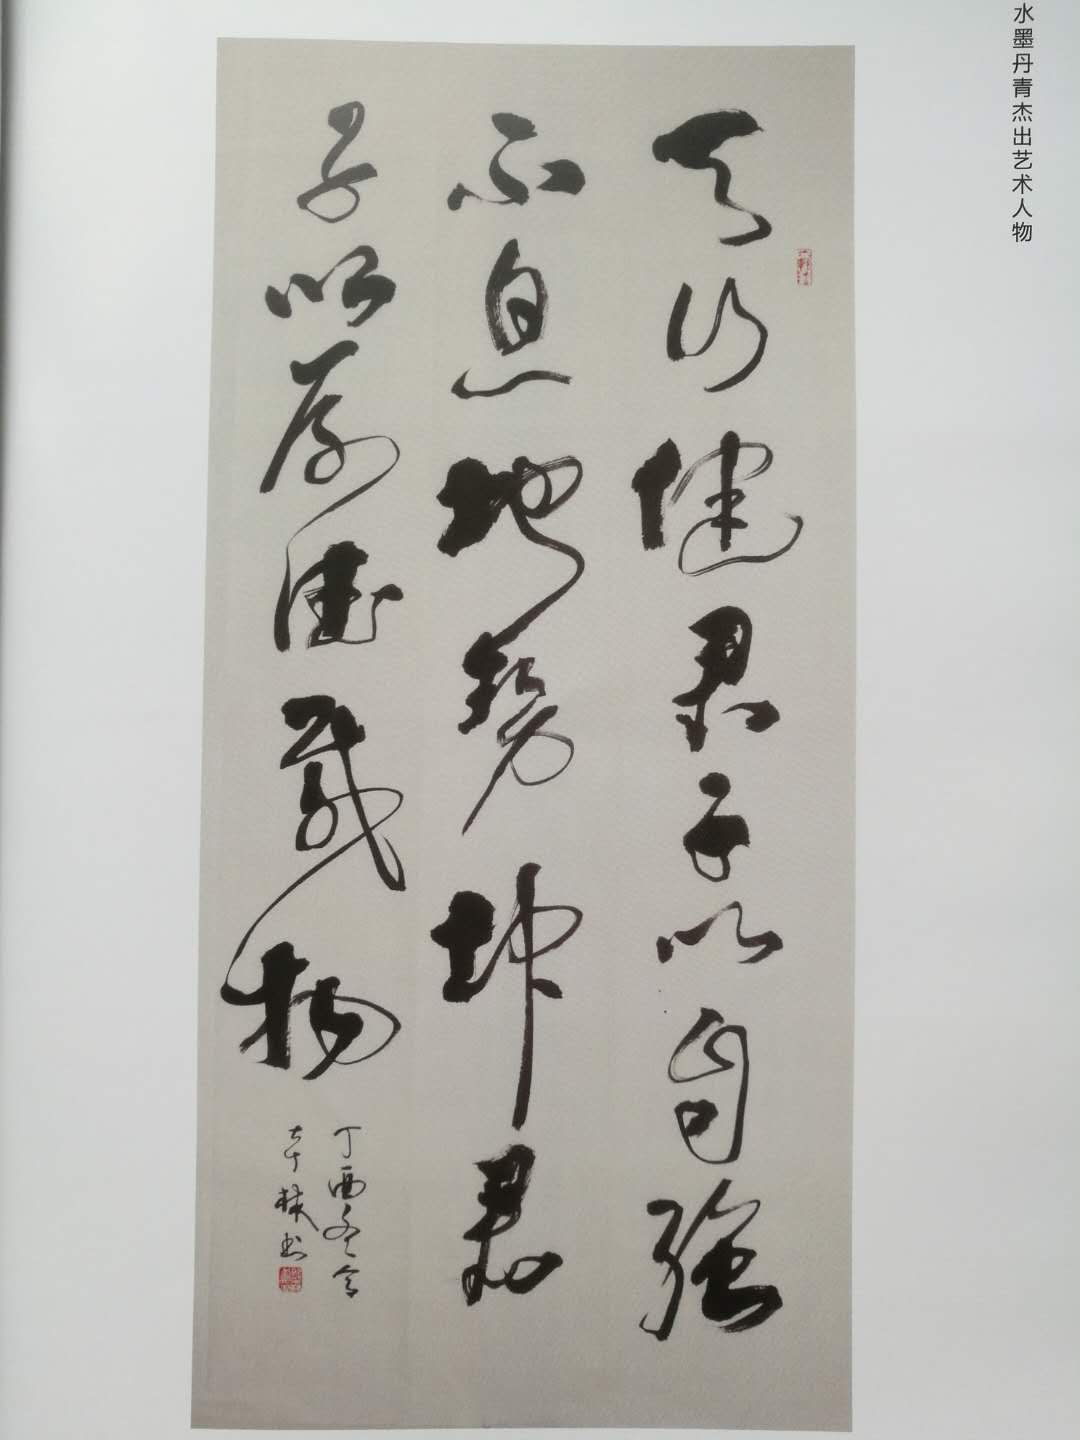 水墨丹青杰出艺术人物
天行健君子以自强
不息地势坤君
子以厚德载物
丁酉冬令
林书